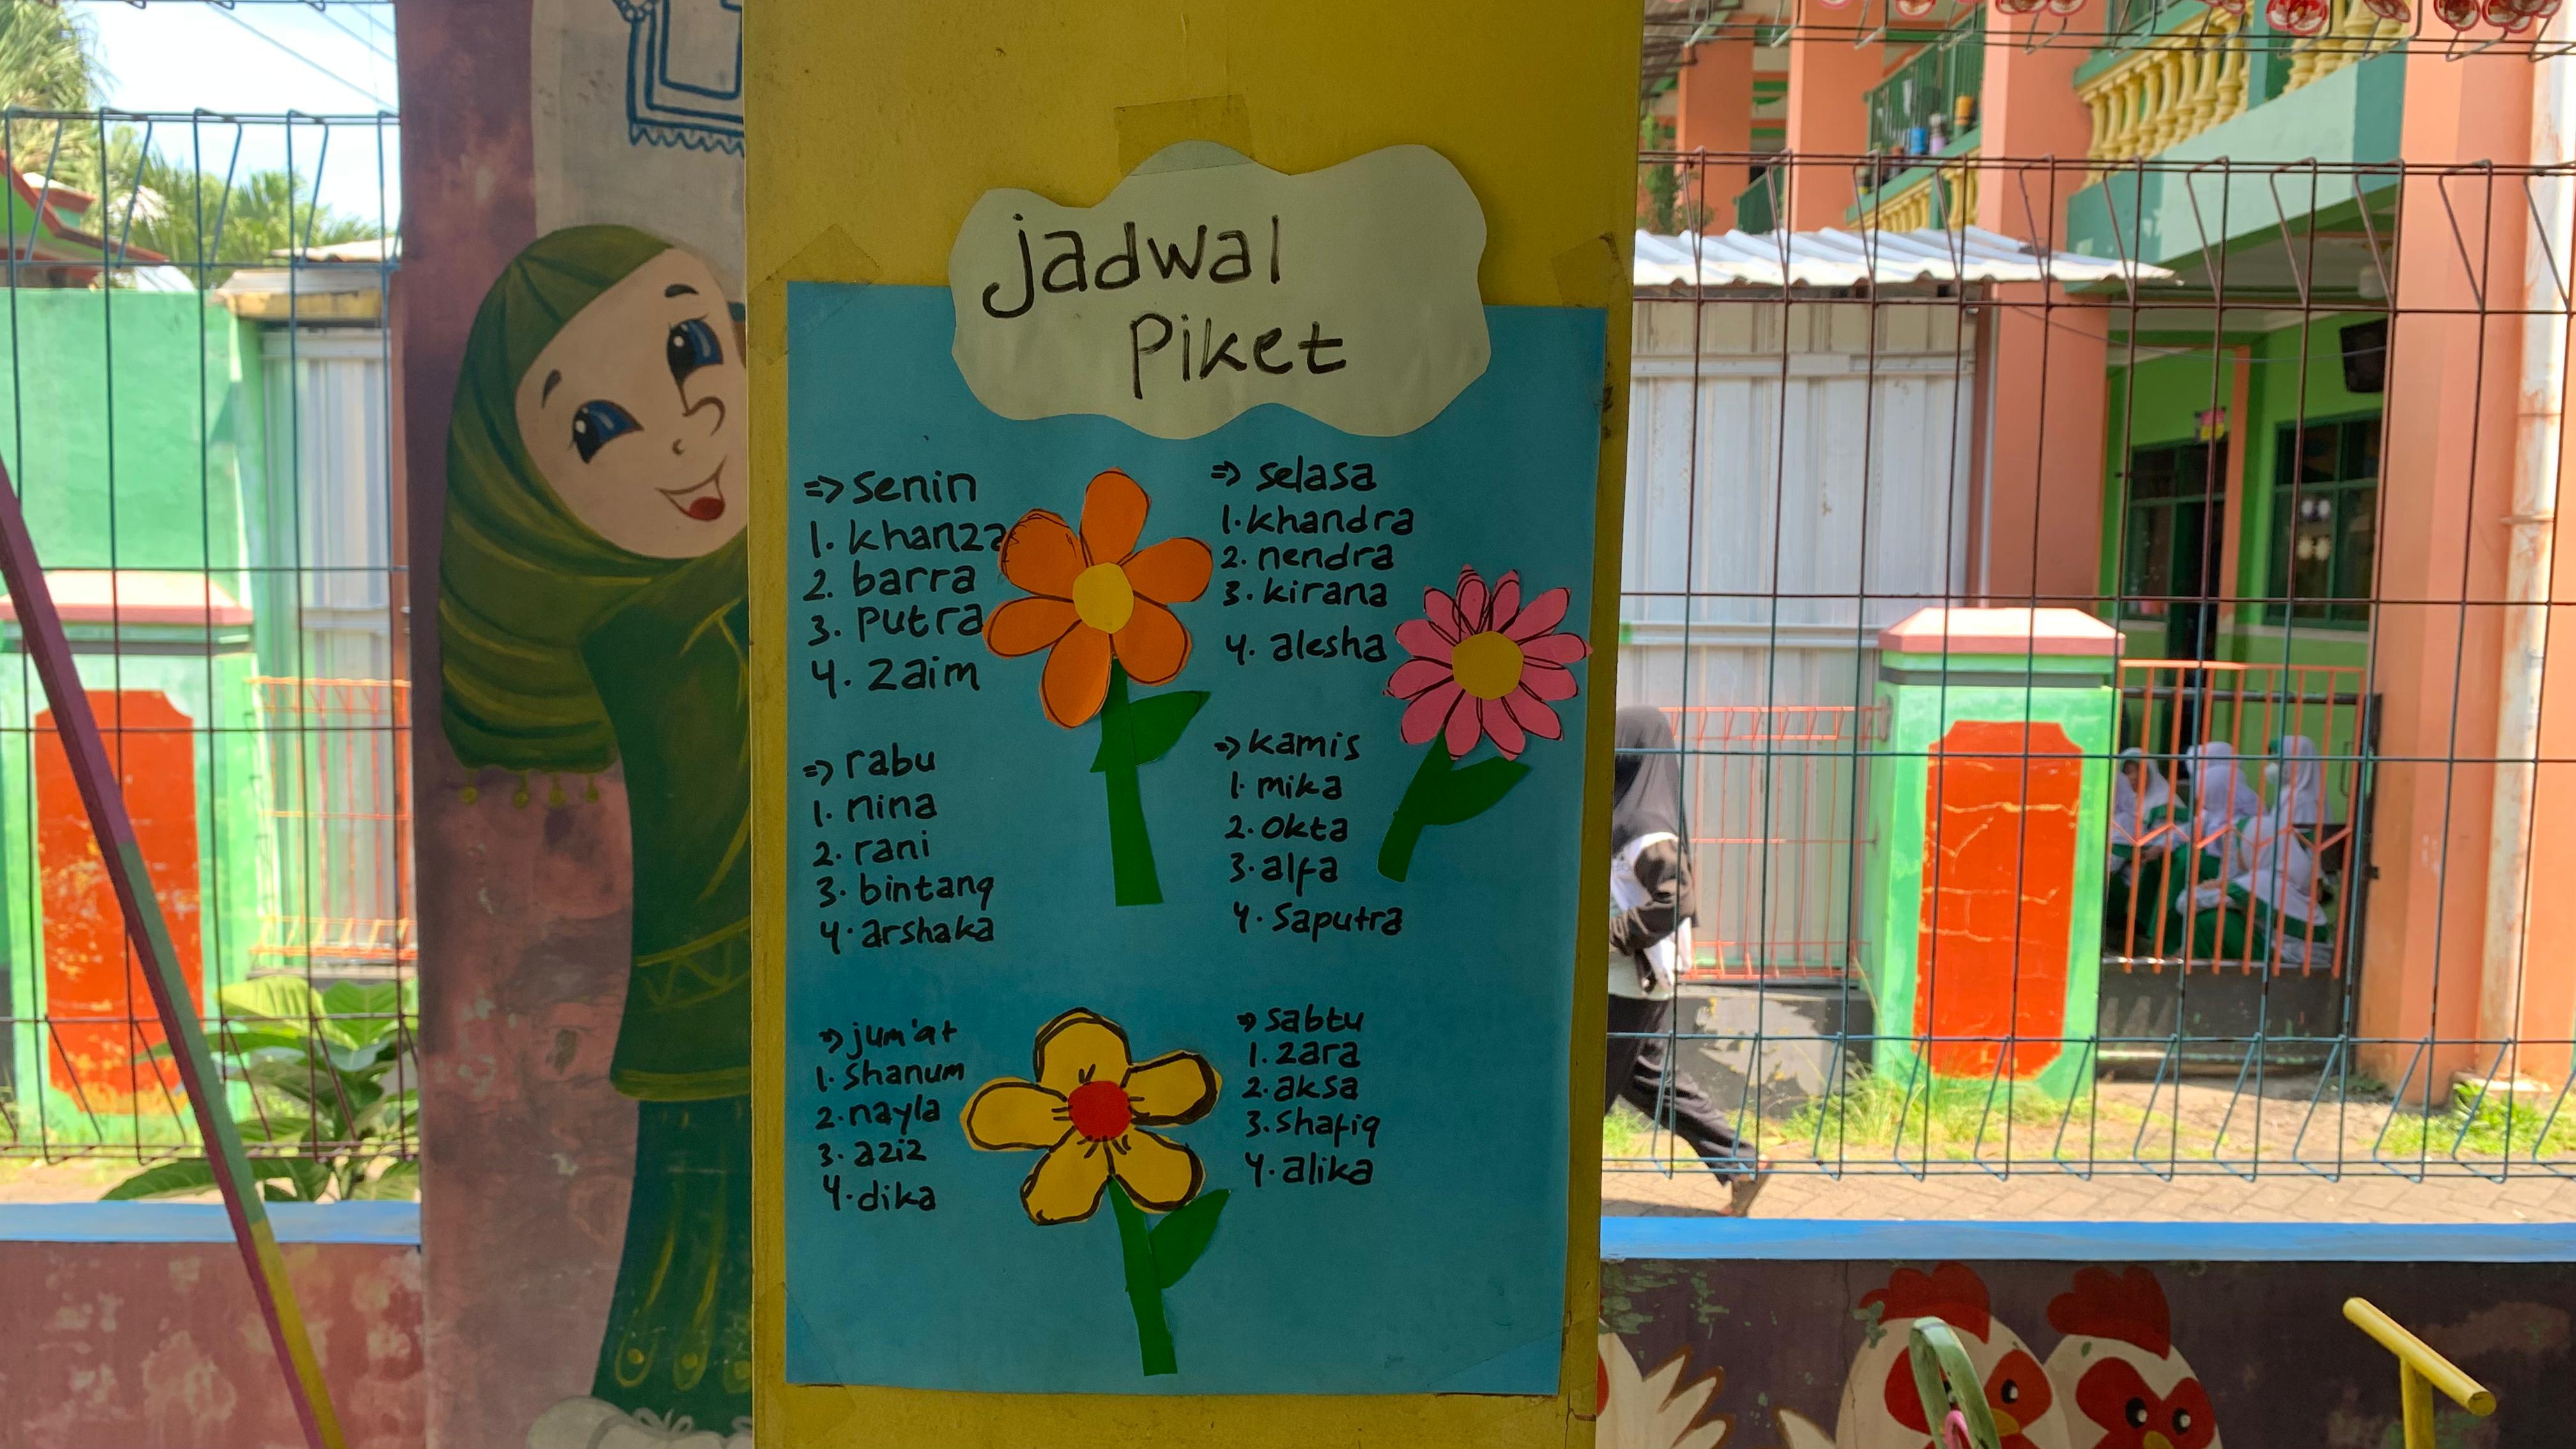 jadwal
Piket
=> senin
1. khanza
2. barra
3. putra
4. zaim
=> selasa
1. khandra
2. nendra
3. kirana
4. alesha
=> rabu
1. nina
2. rani
3. bintang
4. arshaka
=> kamis
1. mika
2. okta
3. alfa
4. Saputra
=> jum'at
1. shanum
2. nayla
3. aziz
4. dika
=> Sabtu
1. zara
2. aksa
3. shafiq
4. alika